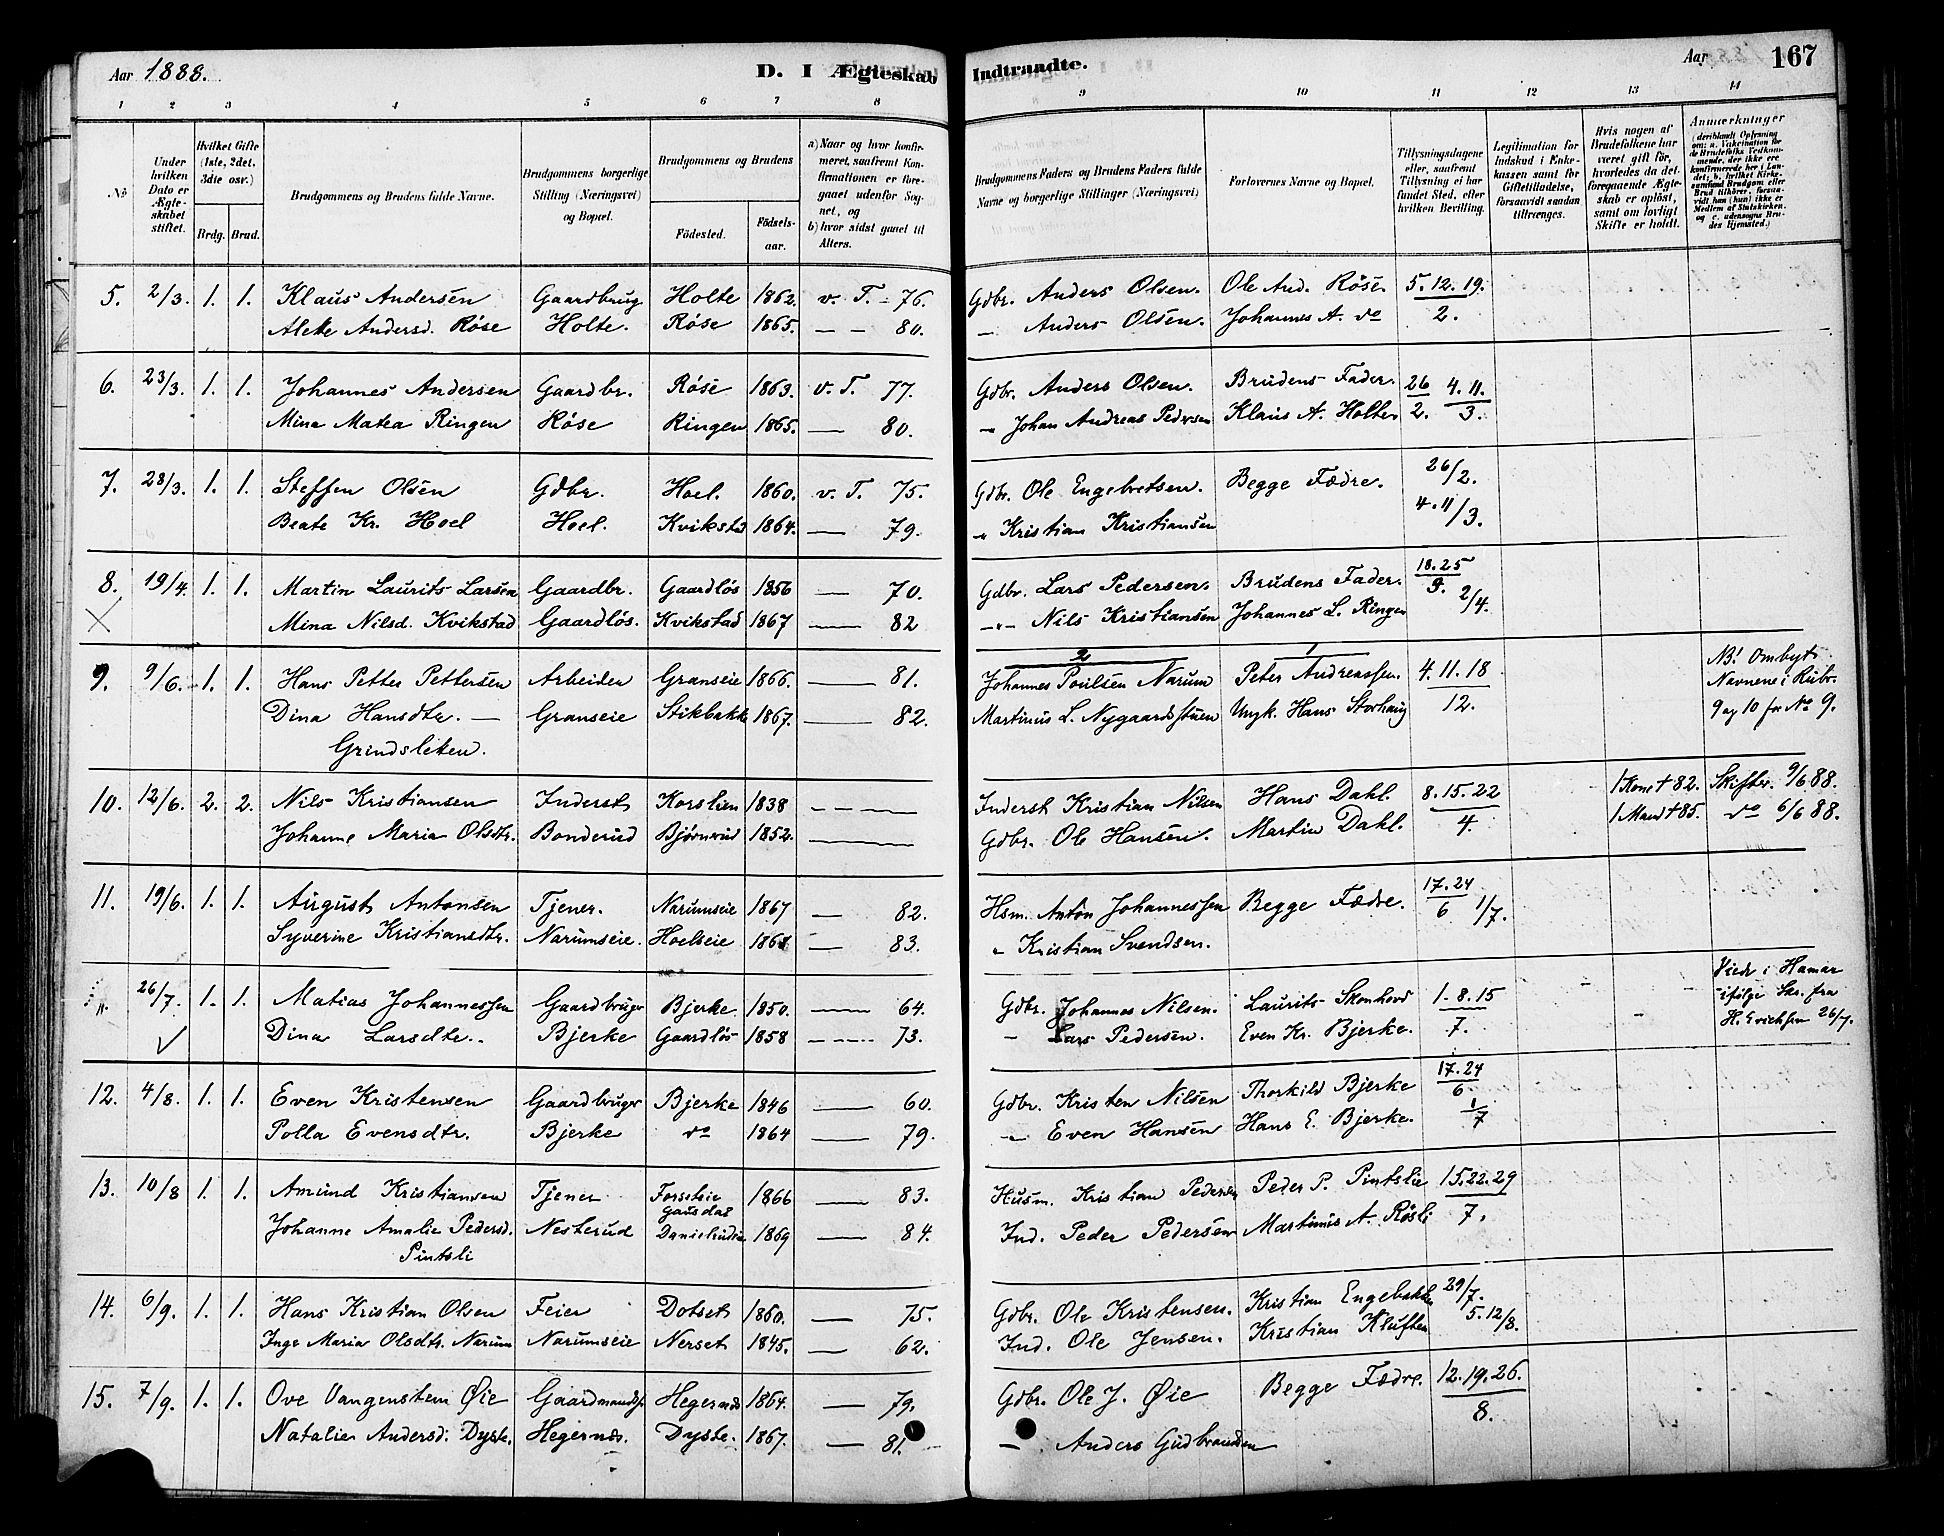 Aar 1888. D. I Ægteskab Indtraadte. Aar 167
1 2 3 4 5 6 7 8 9 10 11 12 13 14
No
Under hvilken Dato er Ægteskabet stiftet.
Hvilket Gifte (1ste, 2det, 3die osv.)
Brdg. Brud.
Brudgommens og Brudens fulde Navne.
Brudgommens borgerlige Stilling (Næringsvei) og Bopæl.
Brudgommens og Brudens
Födested. Födselsaar.
a) Naar og hvor konfirmeret, saafremt Konfirmationen er foregaaet udenfor Sognet, og
b) hvor sidst gaaet til Alters.
Brudgommens Faders og Brudens Faders fulde Navne og borgerlige Stillinger (Næringsvei)
Forlovernes Navne og Bopæl.
Tillysningsdagene eller, saafremt Tillysning ei har fundet Sted, efter hvilken Bevilling.
Legitimation for Indskud i Enkekassen samt for Giftetilladelse, forsaavidt saadan tiltrænges.
Hvis nogen af Brudefolkene har været gift för, hvorledes da det foregaaende Ægteskab er oplöst, samt om lovligt Skifte er holdt.
Anmærkninger (deriblandt Oplysning om: a. Vakcination for de Brudefolks Vedkommende, der ikke ere konfirmerede her i Landet; b. hvilket Kirkesamfund Brudgom eller Brud tilhörer, forsaavidt han (hun) ikke er Medlem af Statskirken, og c. udensogns Brudes Hjemsted.)
5. 2/3. 1. 1. Klaus Andersen Gaardbrug Holte 1862. v. T. - 76. Gdbr. Anders Olsen. Ole And. Röse. 5.12.19.
Andersd. Röse Holte. Röse 1865. — — 80. — Anders Olsen. Johannes A. do 2.
6. 23/3. 1. 1. Johannes Andersen Gaardbr. Röse 1863. v. T. 77. Gdbr. Anders Olsen. Brudens Fader. 26 4.11.
Mina Matea Ringen Röse Ringen 1865. — 80. " Johan Andreas Pedersen Klaus A. Holte 2. 3.
7. 28/3. 1. 1. Steffen Olsen Gdbr. Hoel. 1860. v. T. 75. Gdbr. Ole Engebretsen. Begge Fædre. 26/2.
Beate Kr. Hoel Hoel. Kvikstad 1864. — 79. " Kristian Kristiansen 4.11/3.
8. 19/4. 1. 1. Martin Laurits Larsen Gaardbr. Gaardlös 1856 — 70. Gdbr. Lars Pedersen. Brudens Fader. 18.25
Mina Nilsd. Kvikstad Gaardlös. Kvikstad 1867 — 82 —"— Nils Kristiansen Johannes L. Ringen 2/4.
9. 9/6. 1. 1. Hans Petter Pettersen Arbeider Granseie 1866. — 81. 2 Johannes Poulsen Narum 1 Peter Andreassen. 4.11.18 NB! Ombyt
Dina Hansdtr. — Granseie Stikbakk 1867. — 82. Martinus L. Nygaardsstuen Ungk. Hans Storhaug 12. Navnene i Rubr.
Grindsleken. 9 og 10 for No 9.
10. 12/6. 2. 2. Nils Kristiansen Inderst Korslien 1838 — — — Inderst Kristian Nilsen Hans Dahl. 8.15.22 1 Kone † 82. Skifter. 9/6 88.
Johanne Maria Olsdtr. Bonderud Björnerud 1852. — Gdbr. Ole Hansen. Martin Dahl. 4. 1 Mand † 85. do 6/6 88.
11. 19/6. 1. 1. August Antonsen Tjener. Narumseie 1867 — 82. Hsm. Anton Johannessen Begge Fædre. 17.24
Syverine Kristiansdtr. Narumseie. Hoelseie — 83. " Kristian Svendsen. 6 1/7.
26/7. 1. 1. Matias Johannessen Gaardbruger Bjerke. 1850. — 64. Gdbr. Johannes Nilsen. Laurits Skonhovd 1.8.15 Viede i Hamar
Dina Larsdtr. Bjerke Gaardlös 1858 — 73. — Lars Pedersen. Even Kr. Bjerke. 7. ifölge Skr. fra
H. Erichsen 26/7.
12. 4/8. 1. 1. Even Kristensen Gaardbruger Bjerke 1846 — 60. Gdbr. Kristen Nilsen Thorkild Bjerke 17.24 6.
Polla Evensdtr. Bjerke do 1864 — 79. —"— Even Hansen Hans E. Bjerke. 1/7
13. 10/8 1. 1. Amund Kristiansen Tjener Forseteie Gausdal 1866 — 83. Husm. Kristian Pedersen Peder P. Pintslie 15.22.29
Johanne Amalie Pedersd. Nesterud 1869 — 84. Ind. Peder Pedersen Martinus A. Rösli 7.
Pintsli
14. 6/9. 1. 1. Hans Kristian Olsen Feier Dotset 1860. — 75. Gdbr. Ole Kristensen. Kristian Engebakken 29/7.
Inge Maria Olsdtr. Narum Narumseie Nerset 1845. — 62. Ind. Ole Jensen. Kristian Kluften 5.12/8.
15. 7/9. 1. 1. Ove Vangensten Øie Gaardmands. Hegernæs 1864. — 79. Gdbr. Ole J. Øie Begge Fædre. 12.19.26.
Natalie Andersd. Dyste. Hegernæs. Dyste. 1867. — 81. — Anders Gudbrandsen 8.